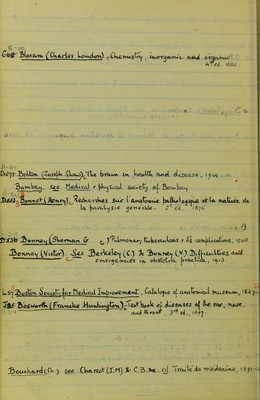 G08 Bloxam (Charles Loudon), Chemistry, inorganic and organic
4th ed. 1880
Bolton (Joseph Shaw), The brain in health and disease, 1914
Bombay, see Medical & physical society of Bombay
Bonnet (Henry), Recherches sur l'anatomie pathologique et la nature de
la paralysie générale. 2e ed. 1876
Bonney (Sherman G.) Pulmonary tuberculosis & its complications, 1908
Bonney (Victor). See Berkeley (C) & Bonney (V) Difficulties and
emergencies in obstetric practice, 1913
Boston Society for Medical Improvement, Catalogue of anatomical museum, 1847
Bosworth (Francke Huntington), Text book of diseases of the ear, nose,
and throat 3rd ed., 1897.
Bouchard (Ch.) see Charcot (J.M) & C.B. Traité de médecine, 1891